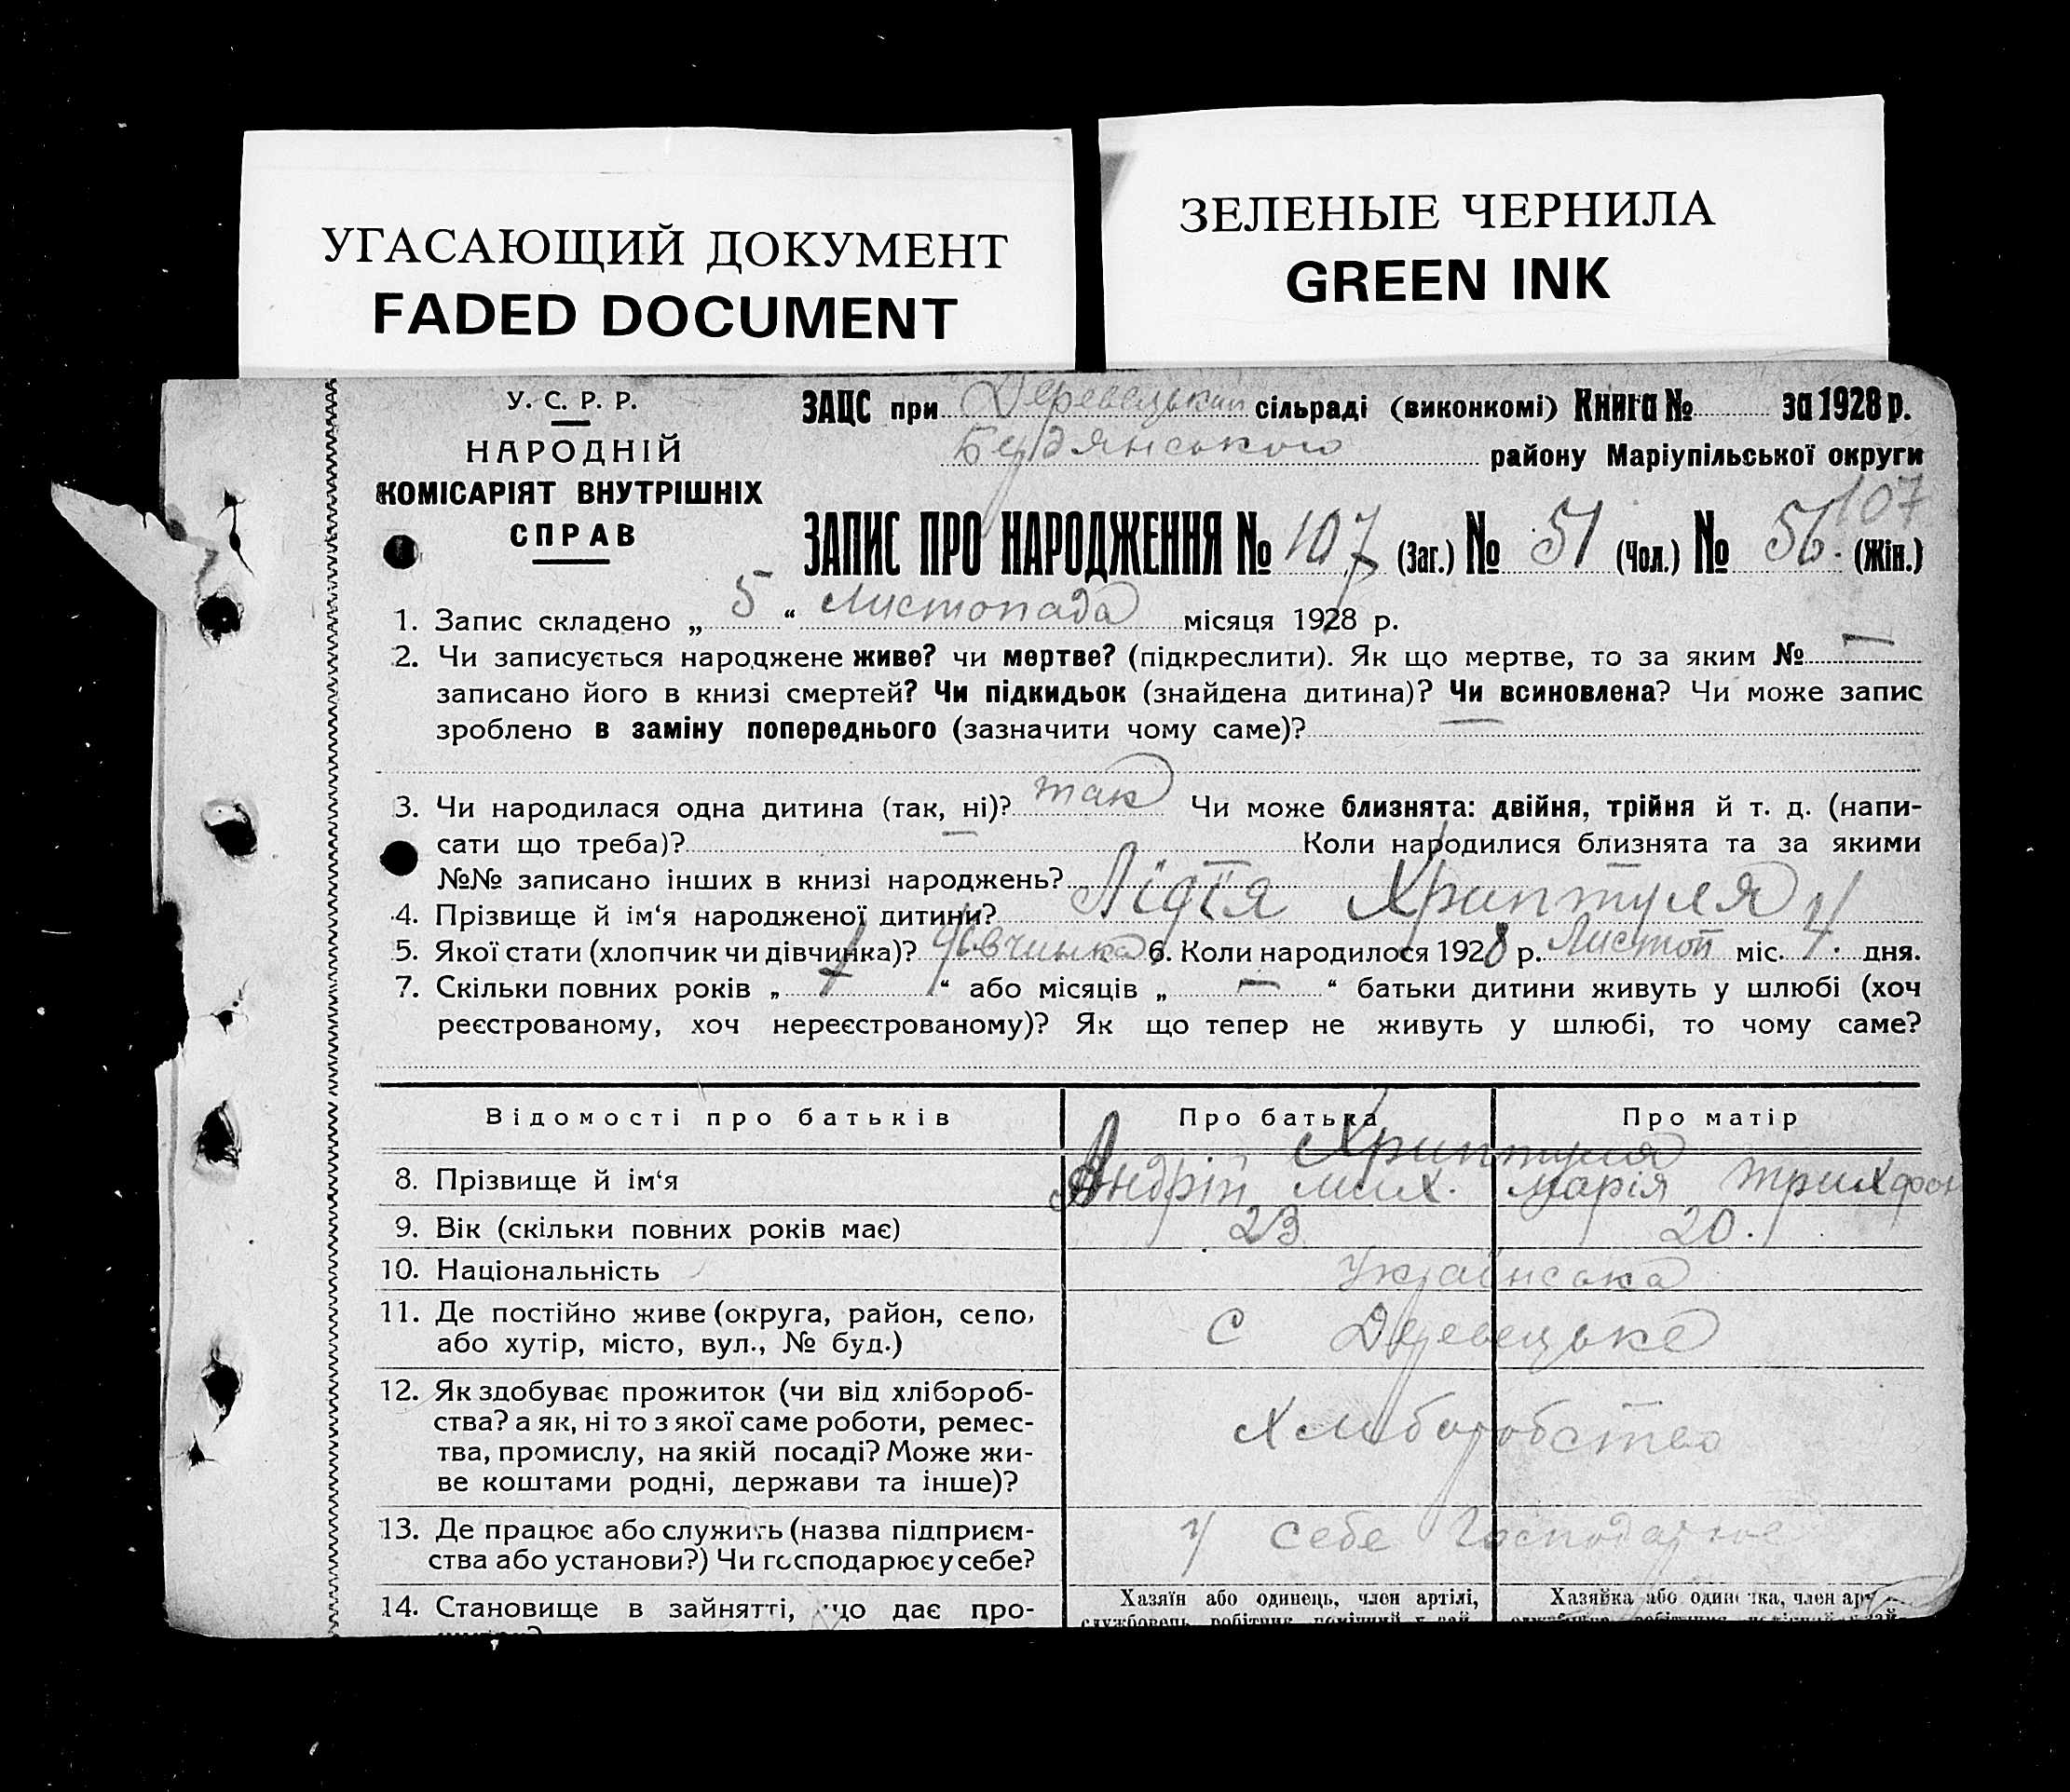 УГАСАЮЩИЙ ДОКУМЕНТ
FADED DOCUMENT
ЗЕЛЕНЫЕ ЧЕРНИЛА
GREEN INK
У. С. Р. Р.
НАРОДНІЙ
КОМІСАРІЯТ ВНУТРІШНІХ
СПРАВ
ЗАЦС при Деревецький сільраді (виконкомі) Книга № за 1928 р.
Бердянського району Маріупільської округи
107
ЗАПИС ПРО НАРОДЖЕННЯ № 107 (Заг.) № 51 (Чол.) № 56. (Жін.)
1. Запис складено „ 5 “ Листопада місяця 1928 р.
2. Чи записується народжене живе? чи мертве? (підкреслити). Як що мертве, то за яким № —
записано його в книзі смертей? Чи підкидьок (знайдена дитина)? Чи всиновлена? Чи може запис
зроблено в заміну попереднього (зазначити чому саме)? —
3. Чи народилася одна дитина (так, ні)? так Чи може близнята: двійня, трійня й т. д. (напи-
сати що треба)? — Коли народилися близнята та за якими
№№ записано інших в книзі народжень? —
4. Прізвище й ім‘я народженої дитини? Лідія Хриптуля
5. Якої стати (хлопчик чи дівчинка)? дівчинка 6. Коли народилося 1928 р. Листоп міс. 4 дня.
7. Скільки повних років „ “ або місяців „ — “ батьки дитини живуть у шлюбі (хоч
реєстрованому, хоч нереєстрованому)? Як що тепер не живуть у шлюбі, то чому саме?
Відомості про батьків Про батька Про матір
Хриптуля
8. Прізвище й ім‘я Андрій мих. марія трихфон
9. Вік (скільки повних років має) 23 20.
10. Національність Українська
11. Де постійно живе (округа, район, село,
або хутір, місто, вул., № буд.) С Деревецьке
12. Як здобуває прожиток (чи від хлібороб-
ства? а як, ні то з якої саме роботи, ремес-
тва, промислу, на якій посаді? Може жи-
ве коштами родні, держави та інше)? Хлиборобство
13. Де працює або служить (назва підприєм-
ства або установи?) Чи господарює у себе? У себе Господарює
14. Становище в зайнятті, що дає про-
Хазяїн або одинець, член артілі,
службовець, робітник, помічний у хаз.
Хазяйка або одиначка, член арт